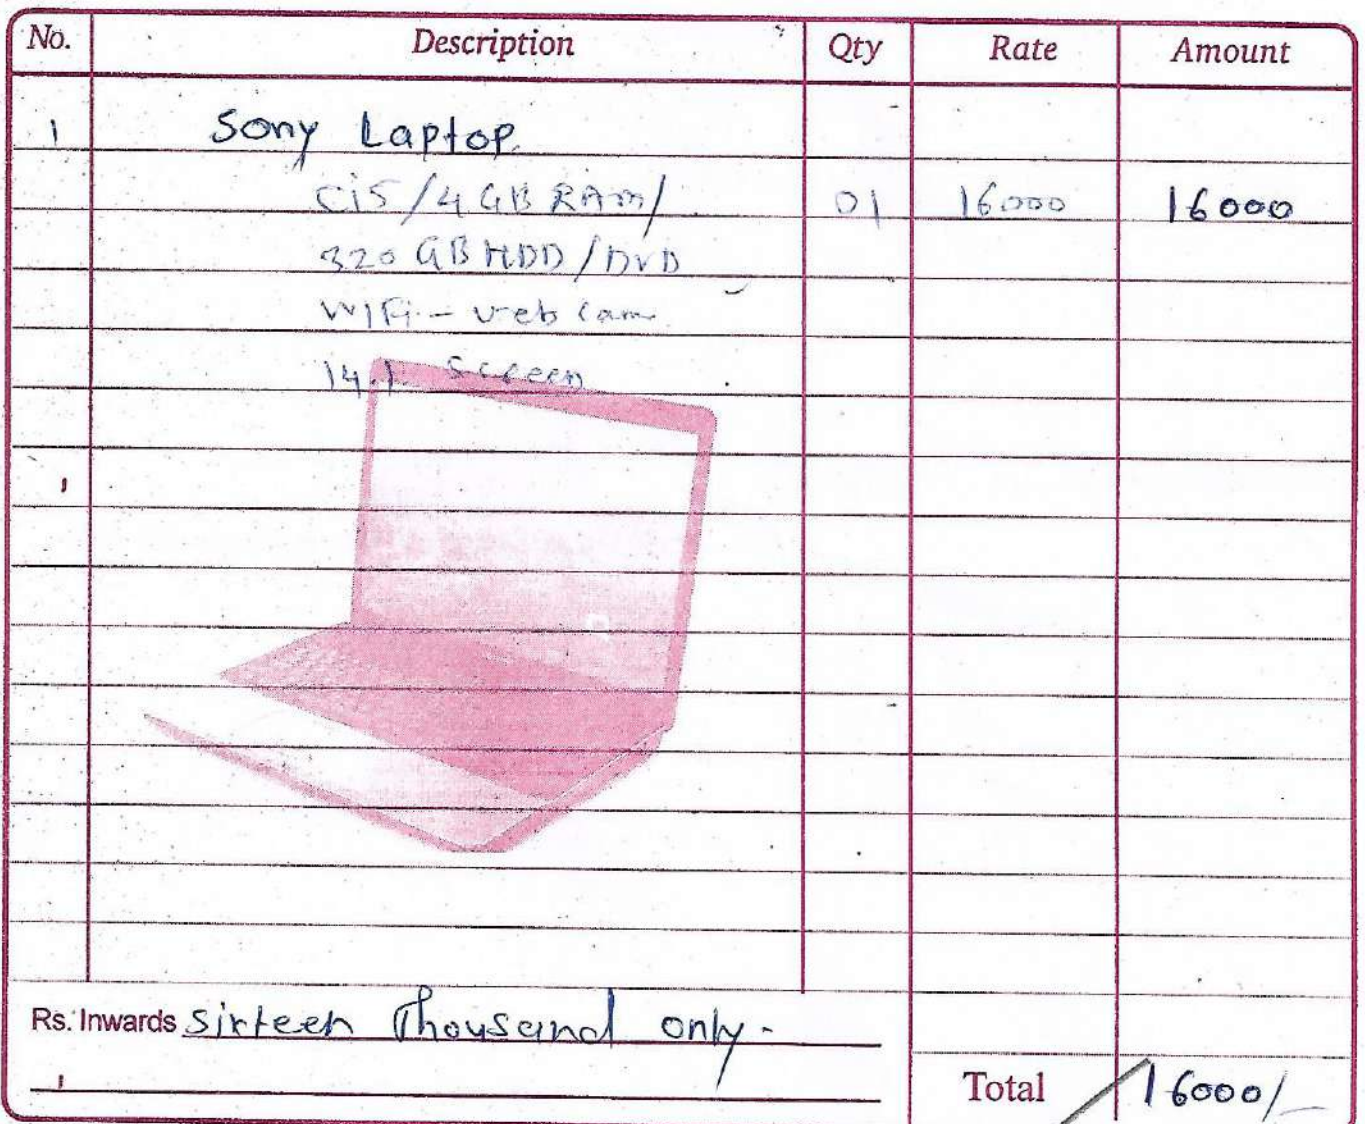 No. Description Qty Rate Amount
1 Sony Laptop
Ci5/4GB RAM/ 01 16000 16000
320 GB HDD/DVD
WIFi - web cam
14.1 Screen
Rs. Inwards Sixteen Thousand only-
Total 16000/-